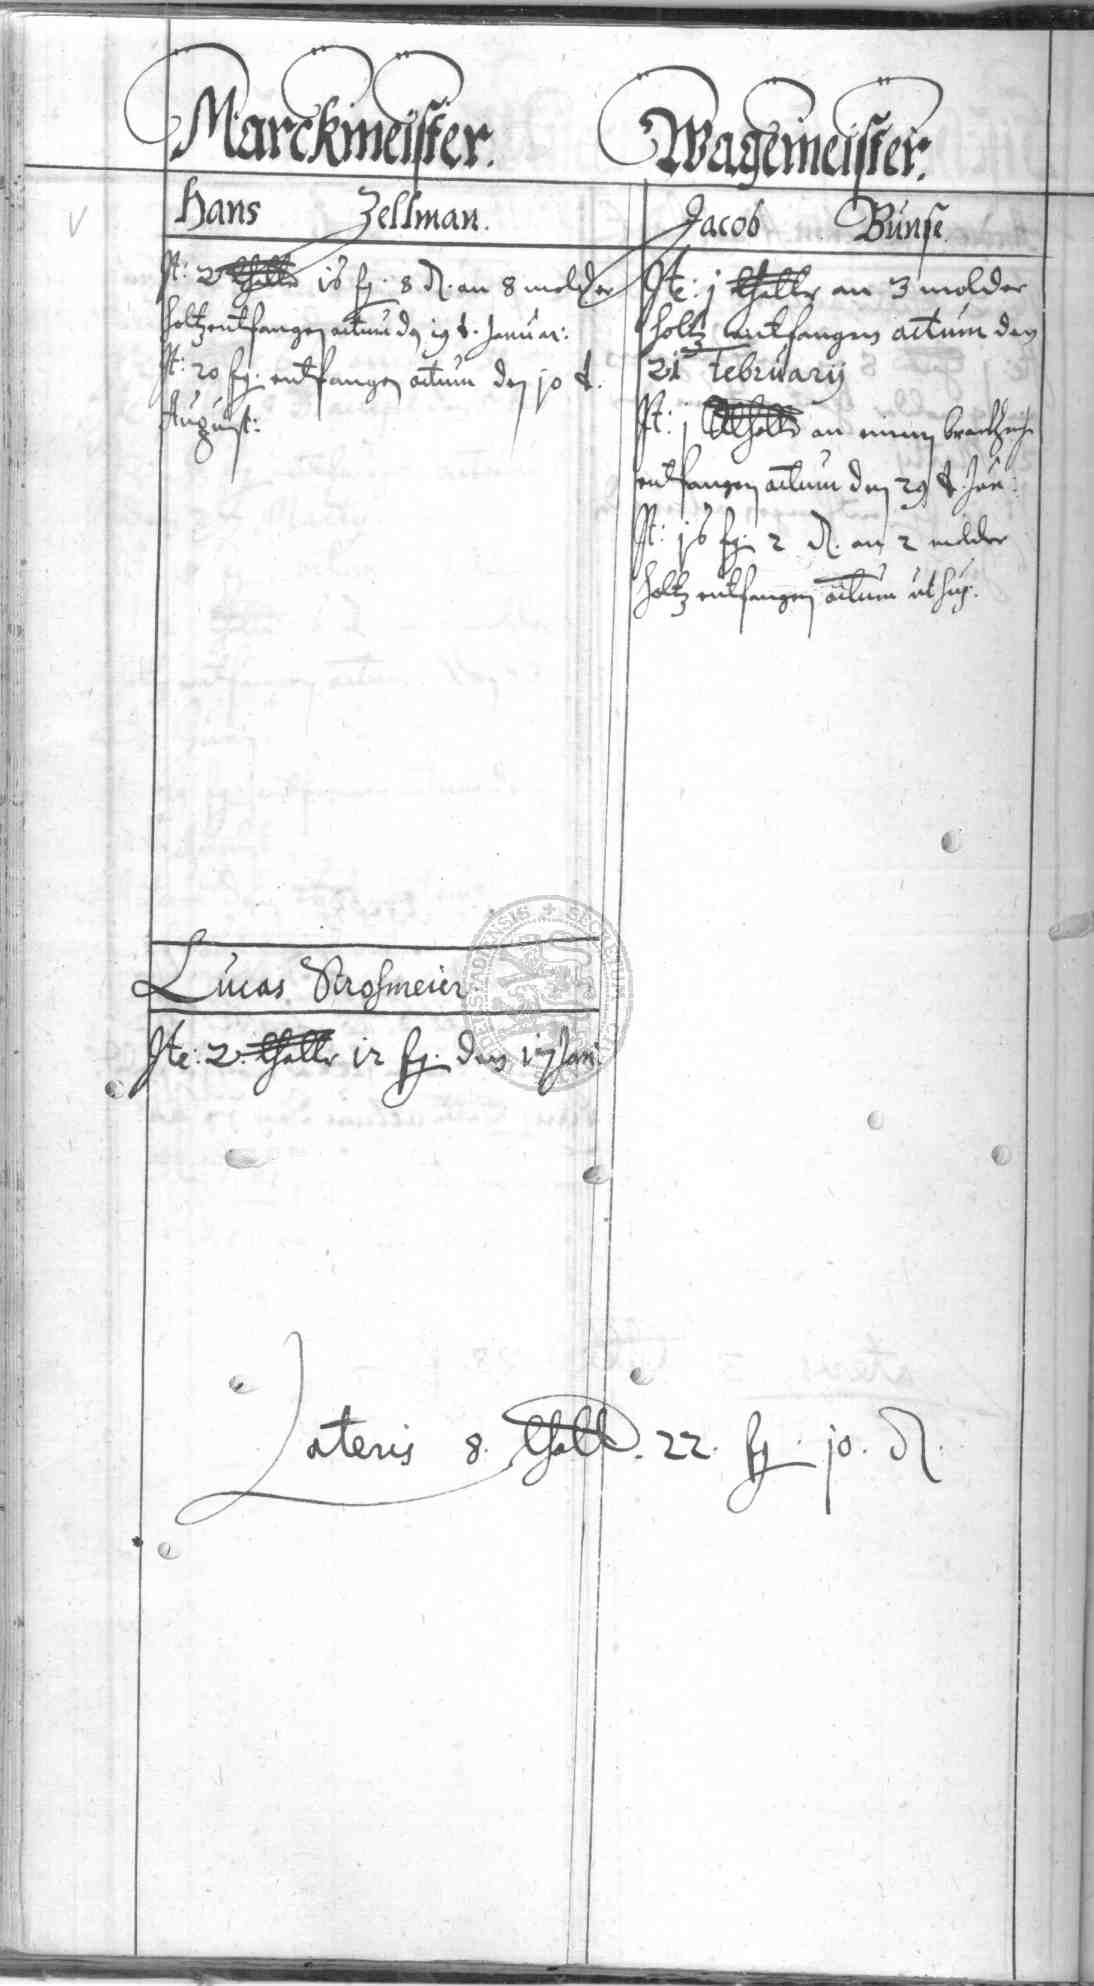 Marckmeister.
Wagemeister.
Hans Zellman.
Jacob Bunse
It: 2 thaller 16 fg. 8 d. an 8 molder
holtz entfangen actum den 19 t. Januar:
It: 20 fg. entfangen actum den 10 t.
August:
Ite: 1 thaller an 3 molder
holtz entfangen actum den
21 February
It: 1 thaller an einem
entfangen actum den 29 t. Jan:
It: 16 fg. 2 d. an 2 molder
holtz entfangen actum ut sup.
Lucas Strosmeier
Ite: 2 thaller 12 fg. den 17 Jan:
Lateris 8. thall. 22. fg. 10. d.